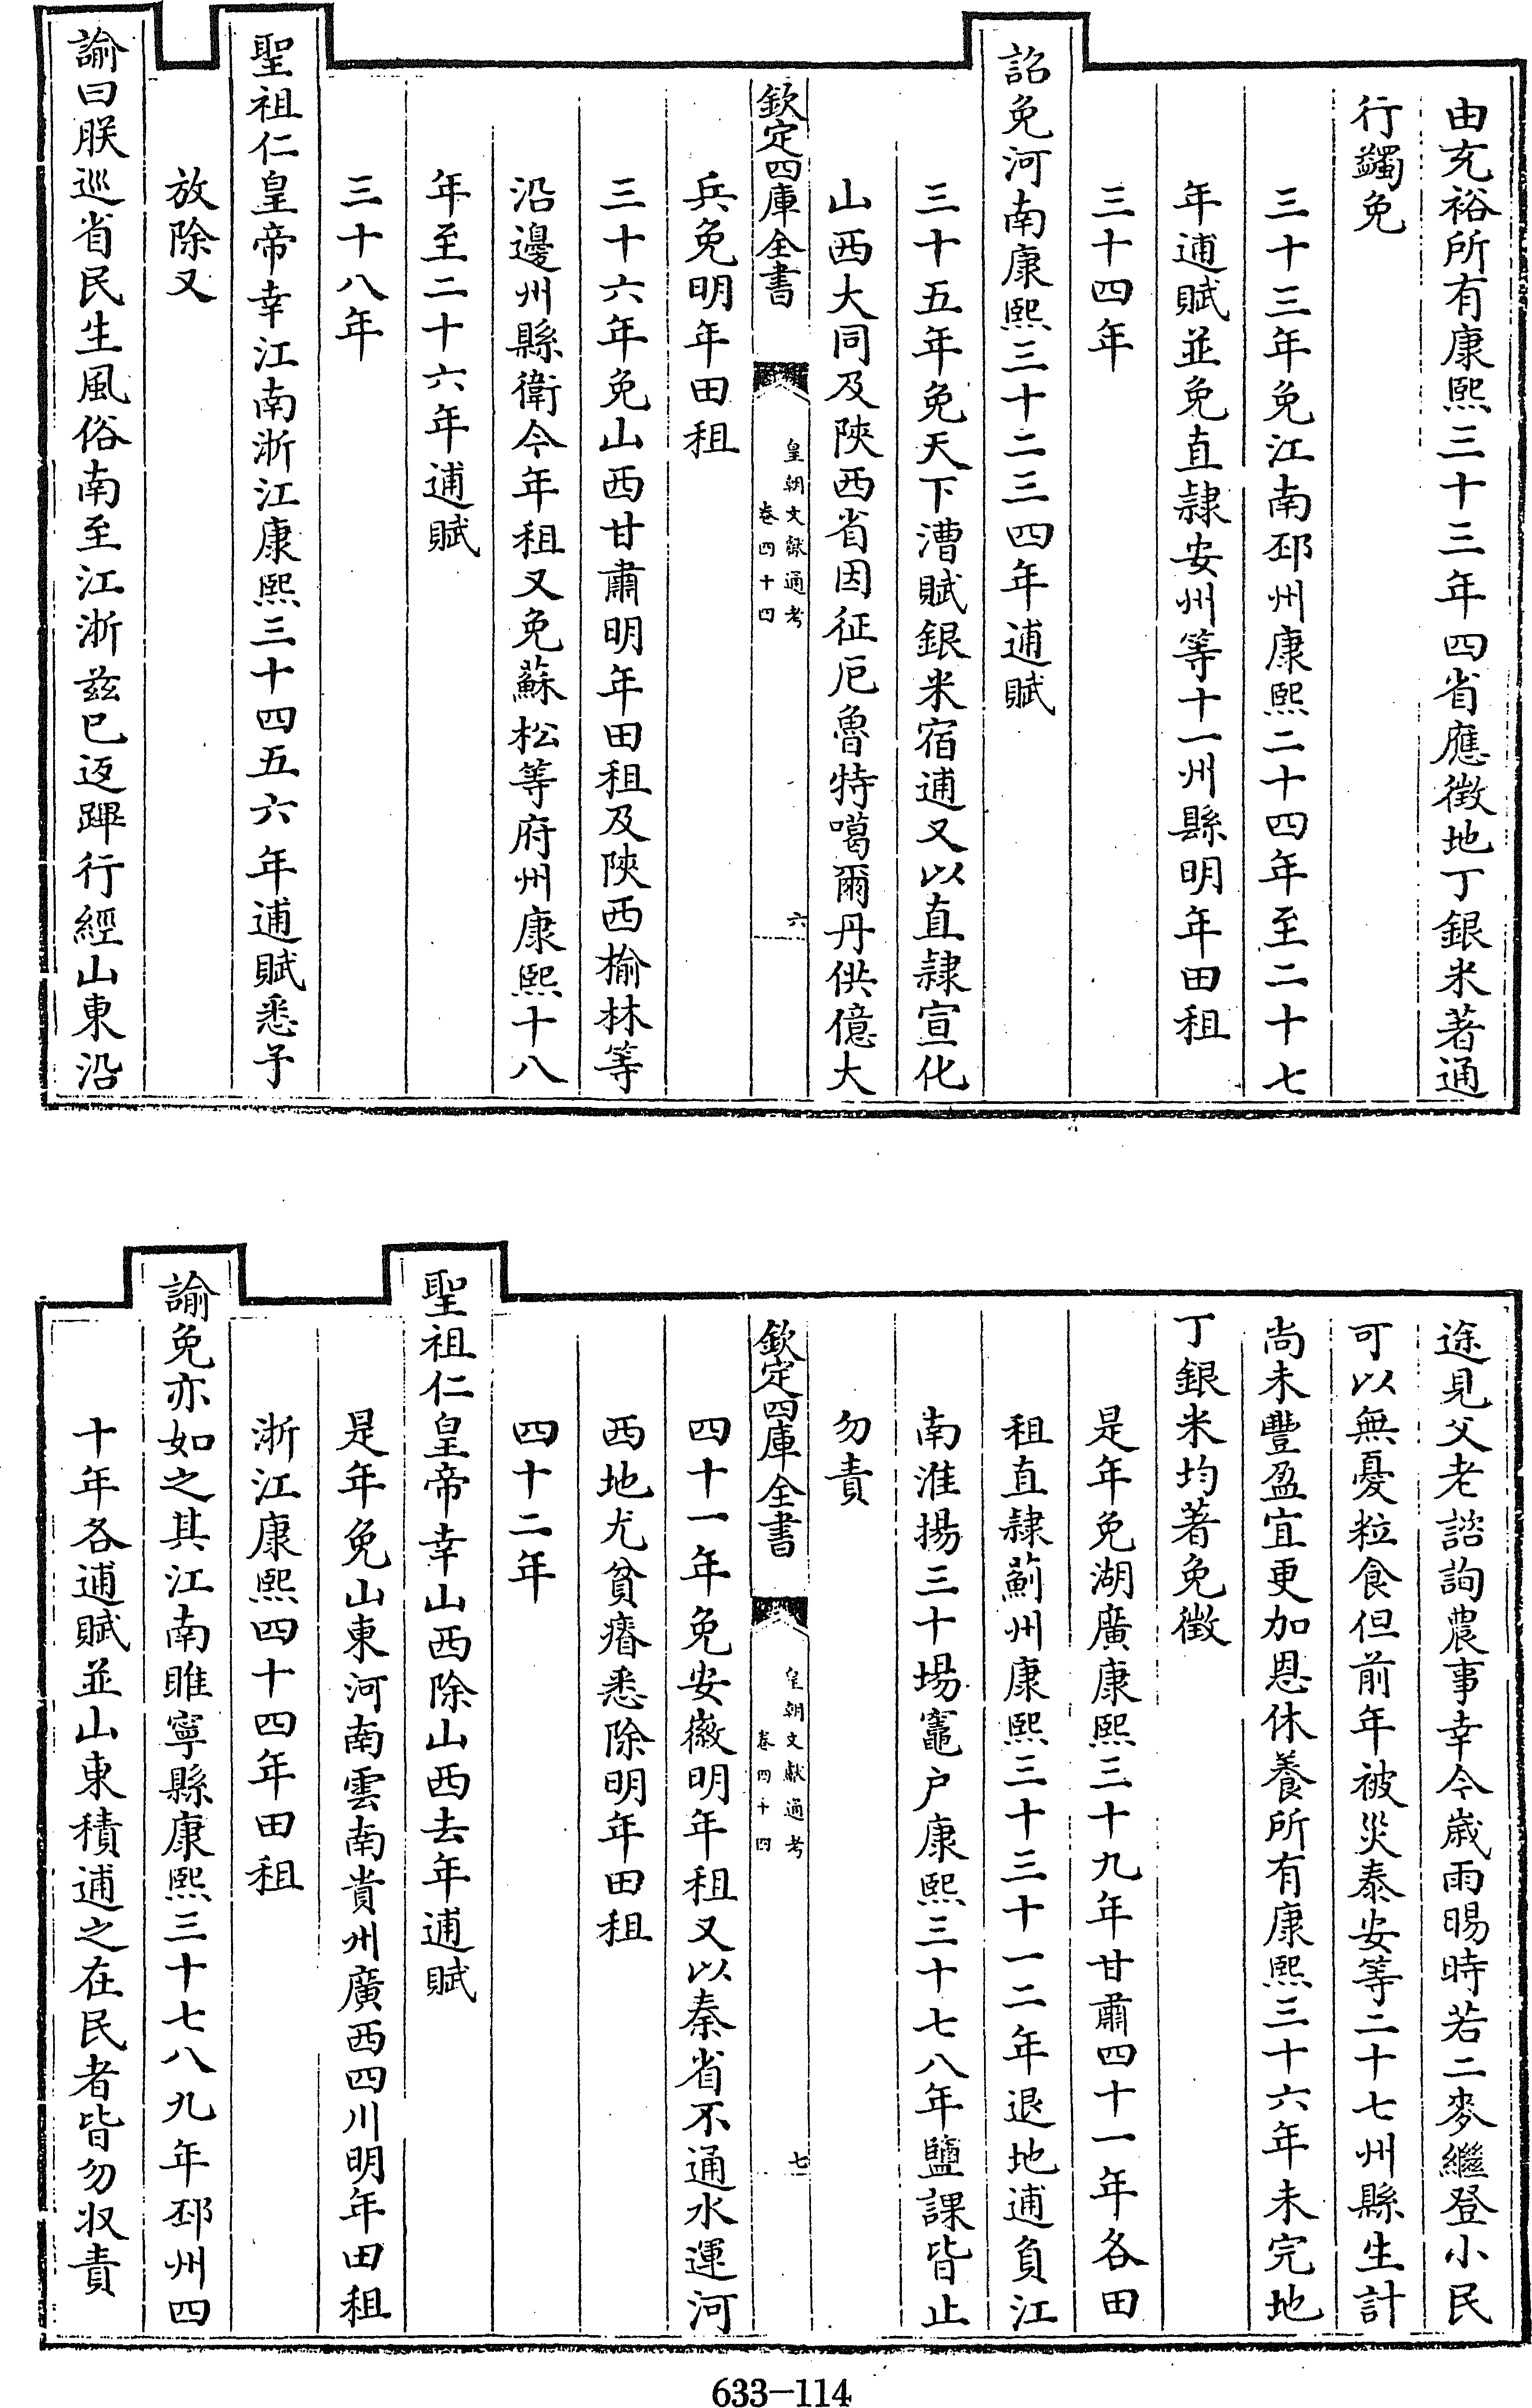 由充裕所有康熙三十三年四省應徵地丁銀米著通
行蠲免
三十三年免江南邳州康熙二十四年至二十七
年逋賦並免直隸安州等十一州縣明年田租
三十四年
詔免河南康熙三十二三四年逋賦
三十五年免天下漕賦銀米宿逋又以直隸宣化
山西大同及陝西省因征厄魯特噶爾丹供億大
欽定四庫全書
皇朝文獻通考
卷四十四
六
兵免明年田租
三十六年免山西甘肅明年田租及陝西榆林等
沿邊州縣衛今年租又免蘇松等府州康熙十八
年至二十六年逋賦
三十八年
聖祖仁皇帝幸江南浙江康熙三十四五六年逋賦悉予
放除又
諭曰朕巡省民生風俗南至江浙茲已迈蹕行經山東沿
途見父老諮詢農事幸今歲雨暘時若二麥繼登小民
可以無憂粒食但前年被災泰安等二十七州縣生計
尚未豐盈宜更加恩休養所有康熙三十六年未完地
丁銀米均著免徵
是年免湖廣康熙三十九年甘肅四十一年各田
租直隸薊州康熙三十三十一二年退地逋負江
南淮揚三十場竈户康熙三十七八年鹽課皆止
勿責
欽定四庫全書
皇朝文獻通考
卷四十四
七
四十一年免安徽明年租又以秦省不通水運河
西地尤貧瘠悉除明年田租
四十二年
聖祖仁皇帝幸山西除山西去年逋賦
是年免山東河南雲南貴州廣西四川明年田租
浙江康熙四十四年田租
諭免亦如之其江南睢寧縣康熙三十七八九年邳州四
十年各逋賦並山東積逋之在民者皆勿收責
633-114